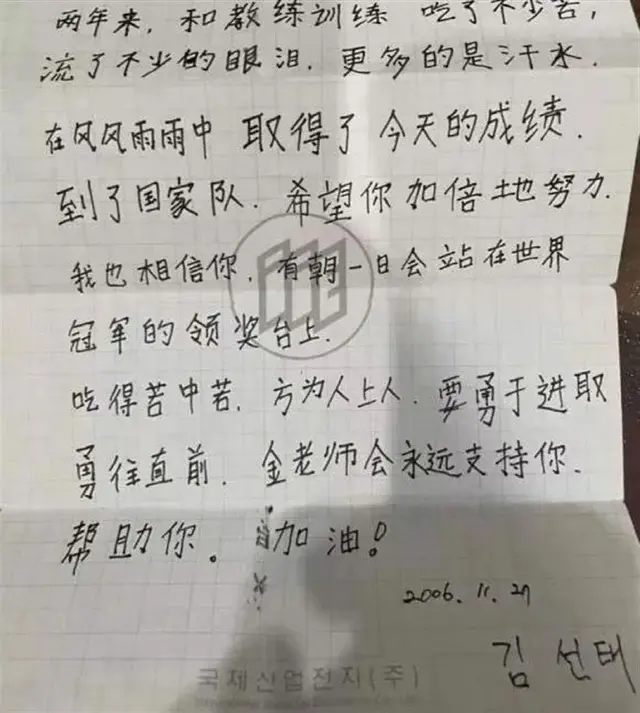 两年来，和教练训练 吃了不少苦，
流了不少的眼泪．更多的是汗水．
在风风雨雨中 取得了今天的成绩．
到了国家队．希望你加倍地努力．
我也相信你，有朝一日会站在世界
冠军的领奖台上．
吃得苦中苦．方为人上人．要勇于进取
勇往直前．金老师会永远支持你．
帮助你。加油！
2006. 11. 27
김 선태
국제산업전지(주)